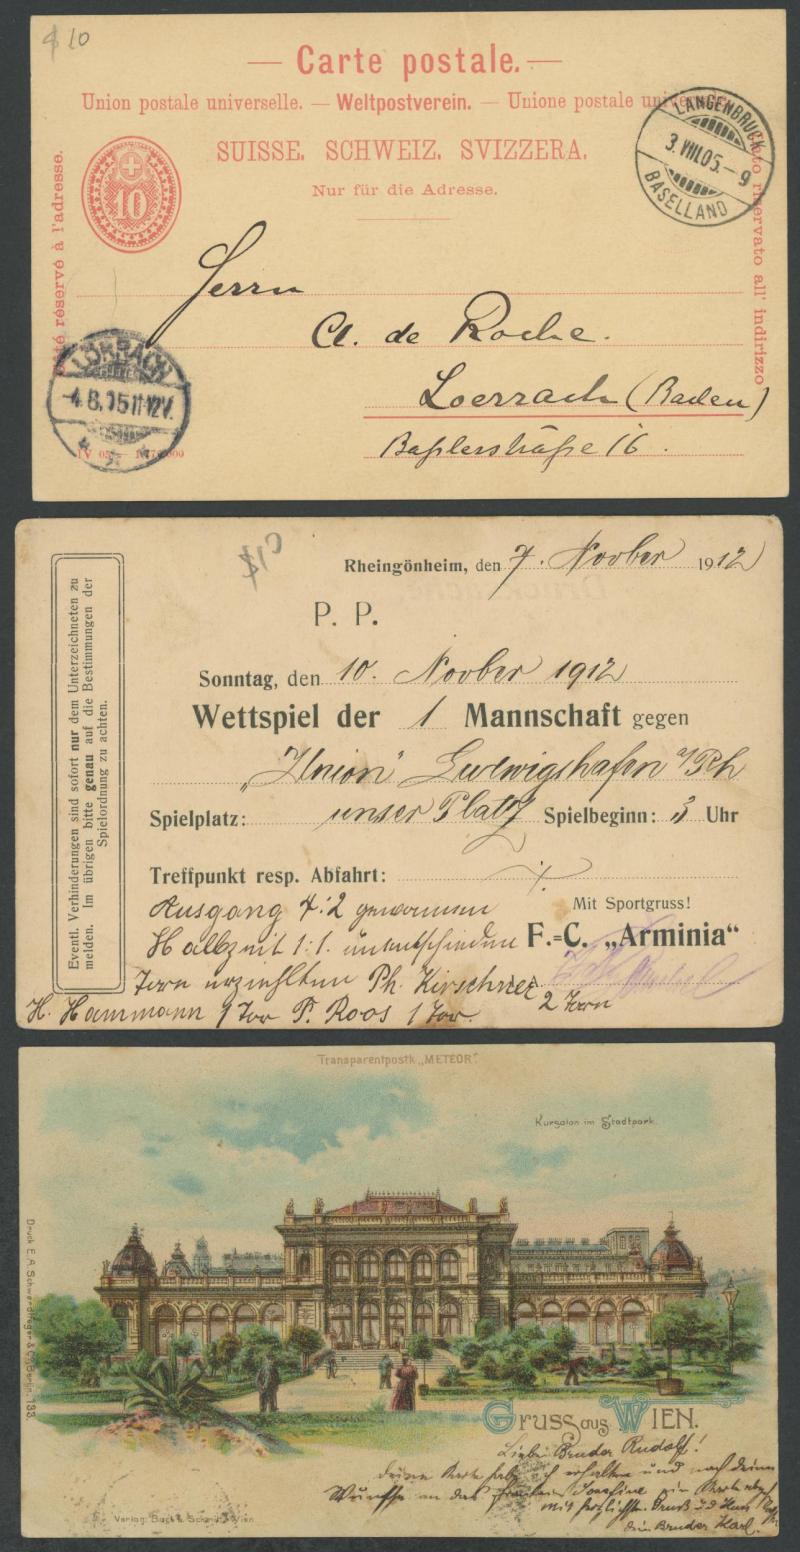 $ 10
— Carte postale. —
Union postale universelle. — Weltpostverein. — Unione postale universale.
SUISSE. SCHWEIZ. SVIZZERA.
Nur für die Adresse.
10
Côté réservé à l'adresse.
Lato riservato all' indirizzo
LANGENBRUCK
3. VIII. 05. – 9
BASELLAND
Herrn
Cl. de Roche.
Loerrach (Baden)
Baslerstraße 16.
LÖRRACH
4.8.05 11-12V.
Rheingönheim, den 7. Novber 1912
P. P.
Sonntag, den 10. Novber 1912
Wettspiel der 1 Mannschaft gegen
"Union" Ludwigshafen a/Rh
Spielplatz: unser Platz Spielbeginn: 3 Uhr
Treffpunkt resp. Abfahrt:
Mit Sportgruss!
F.=C. „Arminia“
Ausgang 7:2 gewonnen
Halbzeit 1:1. unentschieden
Torn erzielten Ph. Kirschner 2 Torn
H. Hammann 1 Tor P. Roos 1 Tor.
Eventl. Verhinderungen sind sofort nur dem Unterzeichneten zu
melden. Im übrigen bitte genau auf die Bestimmungen der
Spielordnung zu achten.
Transparentpostk. „METEOR“.
Kursalon im Stadtpark.
Druck E. A. Schwerdtfeger & Co. Berlin. 133.
GRUSS aus WIEN.
Lieber Bruder Rudolf!
deine Karte habe ich erhalten und nach deinem
Wunsche an das Fräulein Josefine ein Karte
mit herzlichsten Gruß
dein Bruder Karl.
Verlag: Buck & Schmidt, Wien